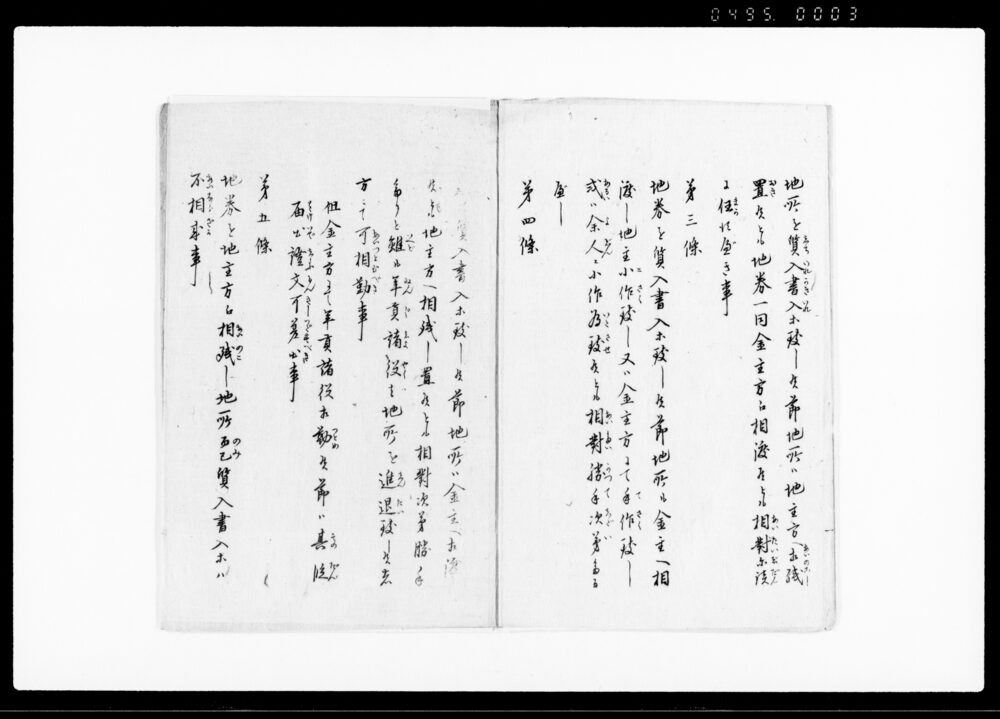 0495. 0003
地所を質入書入ホ致し候節地所ハ地主方へ相残
置候とも地券一同金主方に相渡候とも相對示談
に任すべき事
第三條
地券を質入書入ホ致し候節地所も金主へ相
渡し地主小作致し又ハ金主方にて手作致し
或ハ余人に小作為致候とも相對勝手次第たる
べし
第四條
質入書入ホ致し候節地所ハ金主へ相渡
候とも地主方へ相残し置候とも相對次第勝手
たりと雖も年貢諸役は地所を進退致し候者
方にて可相勤事
但金主方にて年貢諸役ホ勤候節ハ其段
届出證文可差出事
第五條
地券を地主方に相残し地所のみ質入書入ホハ
不相成事